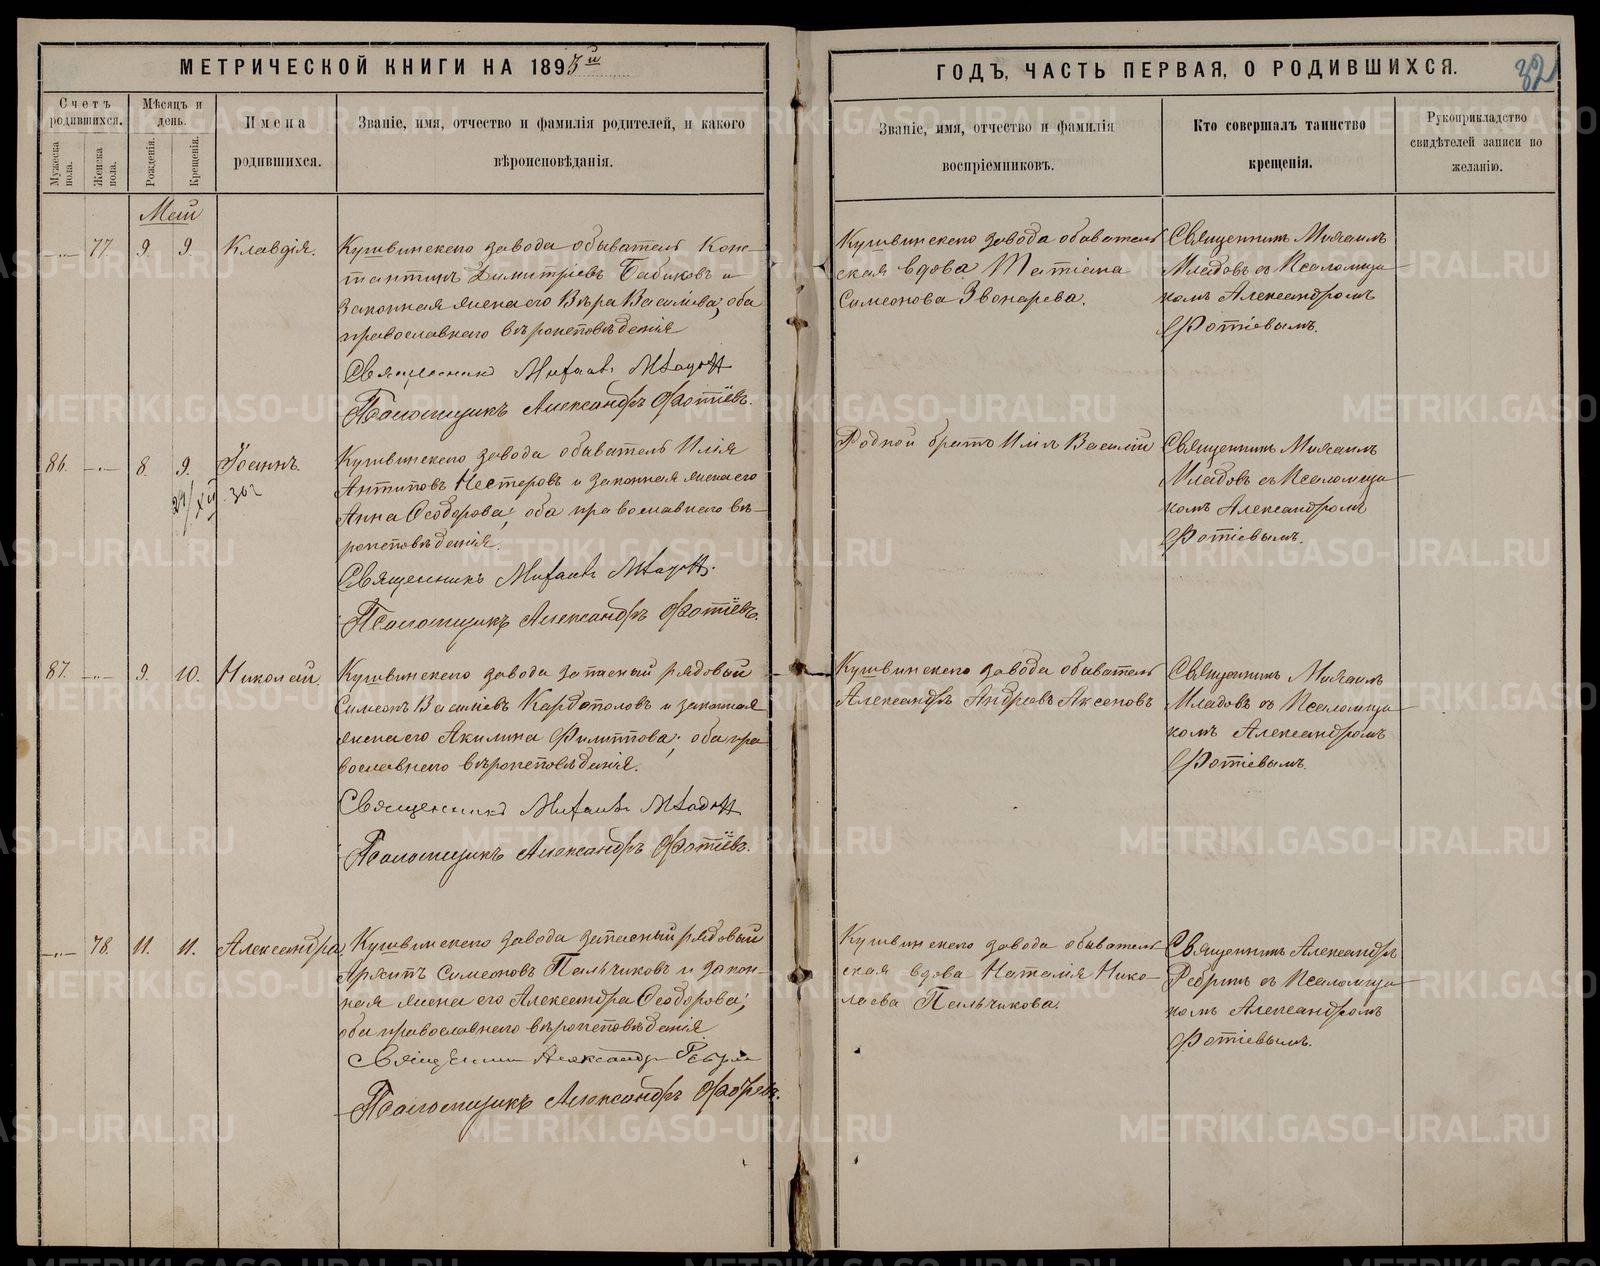 МЕТРИЧЕСКОЙ КНИГИ НА 1893й
Счетъ родившихся.
Мужеска пола.
Женска пола.
Мѣсяцъ и день.
Рожденія.
Крещенія.
Имена родившихся.
Званіе, имя, отчество и фамилія родителей, и какого
вѣроисповѣданія.
Май
77. 9. 9. Клавдія.
Кушвинскаго завода обыватель Кон-
стантинъ Димитріевъ Бабиковъ и
законная жена его Вѣра Васильева; оба
православнаго вѣроисповѣданія
Священникъ Михаилъ Младовъ
Псаломщикъ Александръ Фотіевъ.
86. 8. 9. Іоаннъ.
Кушвинскаго завода обыватель Илія
Антиповъ Нестеровъ и законная жена его
Анна Ѳеодорова; оба православнаго вѣ-
роисповѣданія.
Священникъ Михаилъ Младовъ.
Псаломщикъ Александръ Фотіевъ.
87. 9. 10. Николай.
Кушвинскаго завода запасный рядовый
Симеонъ Васильевъ Кардополовъ и законная
жена его Акилина Филиппова; оба пра-
вославнаго вѣроисповѣданія.
Священникъ Михаилъ Младовъ
Псаломщикъ Александръ Фотіевъ.
78. 11. 11. Александра.
Кушвинскаго завода запасный рядовый
Архипъ Симеоновъ Пальчиковъ и закон-
ная жена его Александра Ѳеодорова;
оба православнаго вѣроисповѣданія
Священникъ Александръ
Псаломщикъ Александръ Фотіевъ.
ГОДЪ, ЧАСТЬ ПЕРВАЯ, О РОДИВШИХСЯ.
32
Званіе, имя, отчество и фамилія
воспріемниковъ.
Кто совершалъ таинство
крещенія.
Рукоприкладство
свидѣтелей записи по
желанію.
Кушвинскаго завода обыватель
ская вдова Татіана
Симеонова Звонарева.
Священникъ Михаилъ
Младовъ съ Псаломщи
комъ Александромъ
Фотіевымъ.
Родной братъ Илія Василій
Священникъ Михаилъ
Младовъ съ Псаломщи
комъ Александромъ
Фотіевымъ.
Кушвинскаго завода обыватель
Александръ Андреевъ Аксеновъ
Священникъ Михаилъ
Младовъ съ Псаломщи
комъ Александромъ
Фотіевымъ.
Кушвинскаго завода обыватель
ская вдова Наталія Нико-
лаева Пальчикова.
Священникъ Александръ
съ Псаломщи
комъ Александромъ
Фотіевымъ.
METRIKI.GASO-URAL.RU